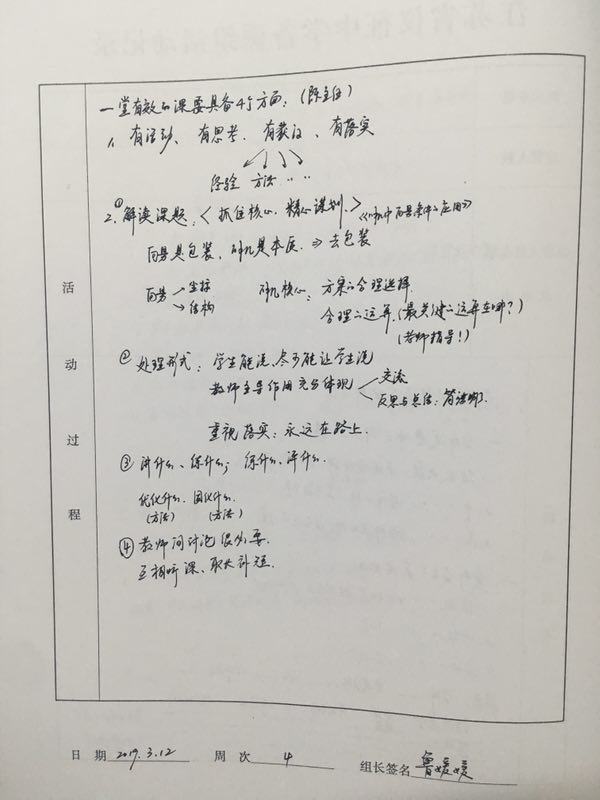 一堂有效的课要具备4个方面：(陈主任)
1、有活动、有思考、有获得、有落实
经验 方法 ‥ ‥
2.①解读课题：<抓住核心，精心谋划>
向量是包装，解几是本质 ⇒ 去包装
向量 → 坐标
→ 结构
解几核心：方案的合理选择
合理的运算.(最关键的运算在哪?)
(老师指导!)
② 处理形式：学生能说，尽可能让学生说
教师主导作用充分体现
交流
反思与总结：
重视落实：永远在路上.
③ 讲什么、练什么；练什么、评什么.
优化什么.固化什么.
(方法) (方法)
④ 教师间讨论很必要.
互相听课、取长补短.
活动过程
日 期 2019.3.12 周 次 4 组长签名 鲁媛媛